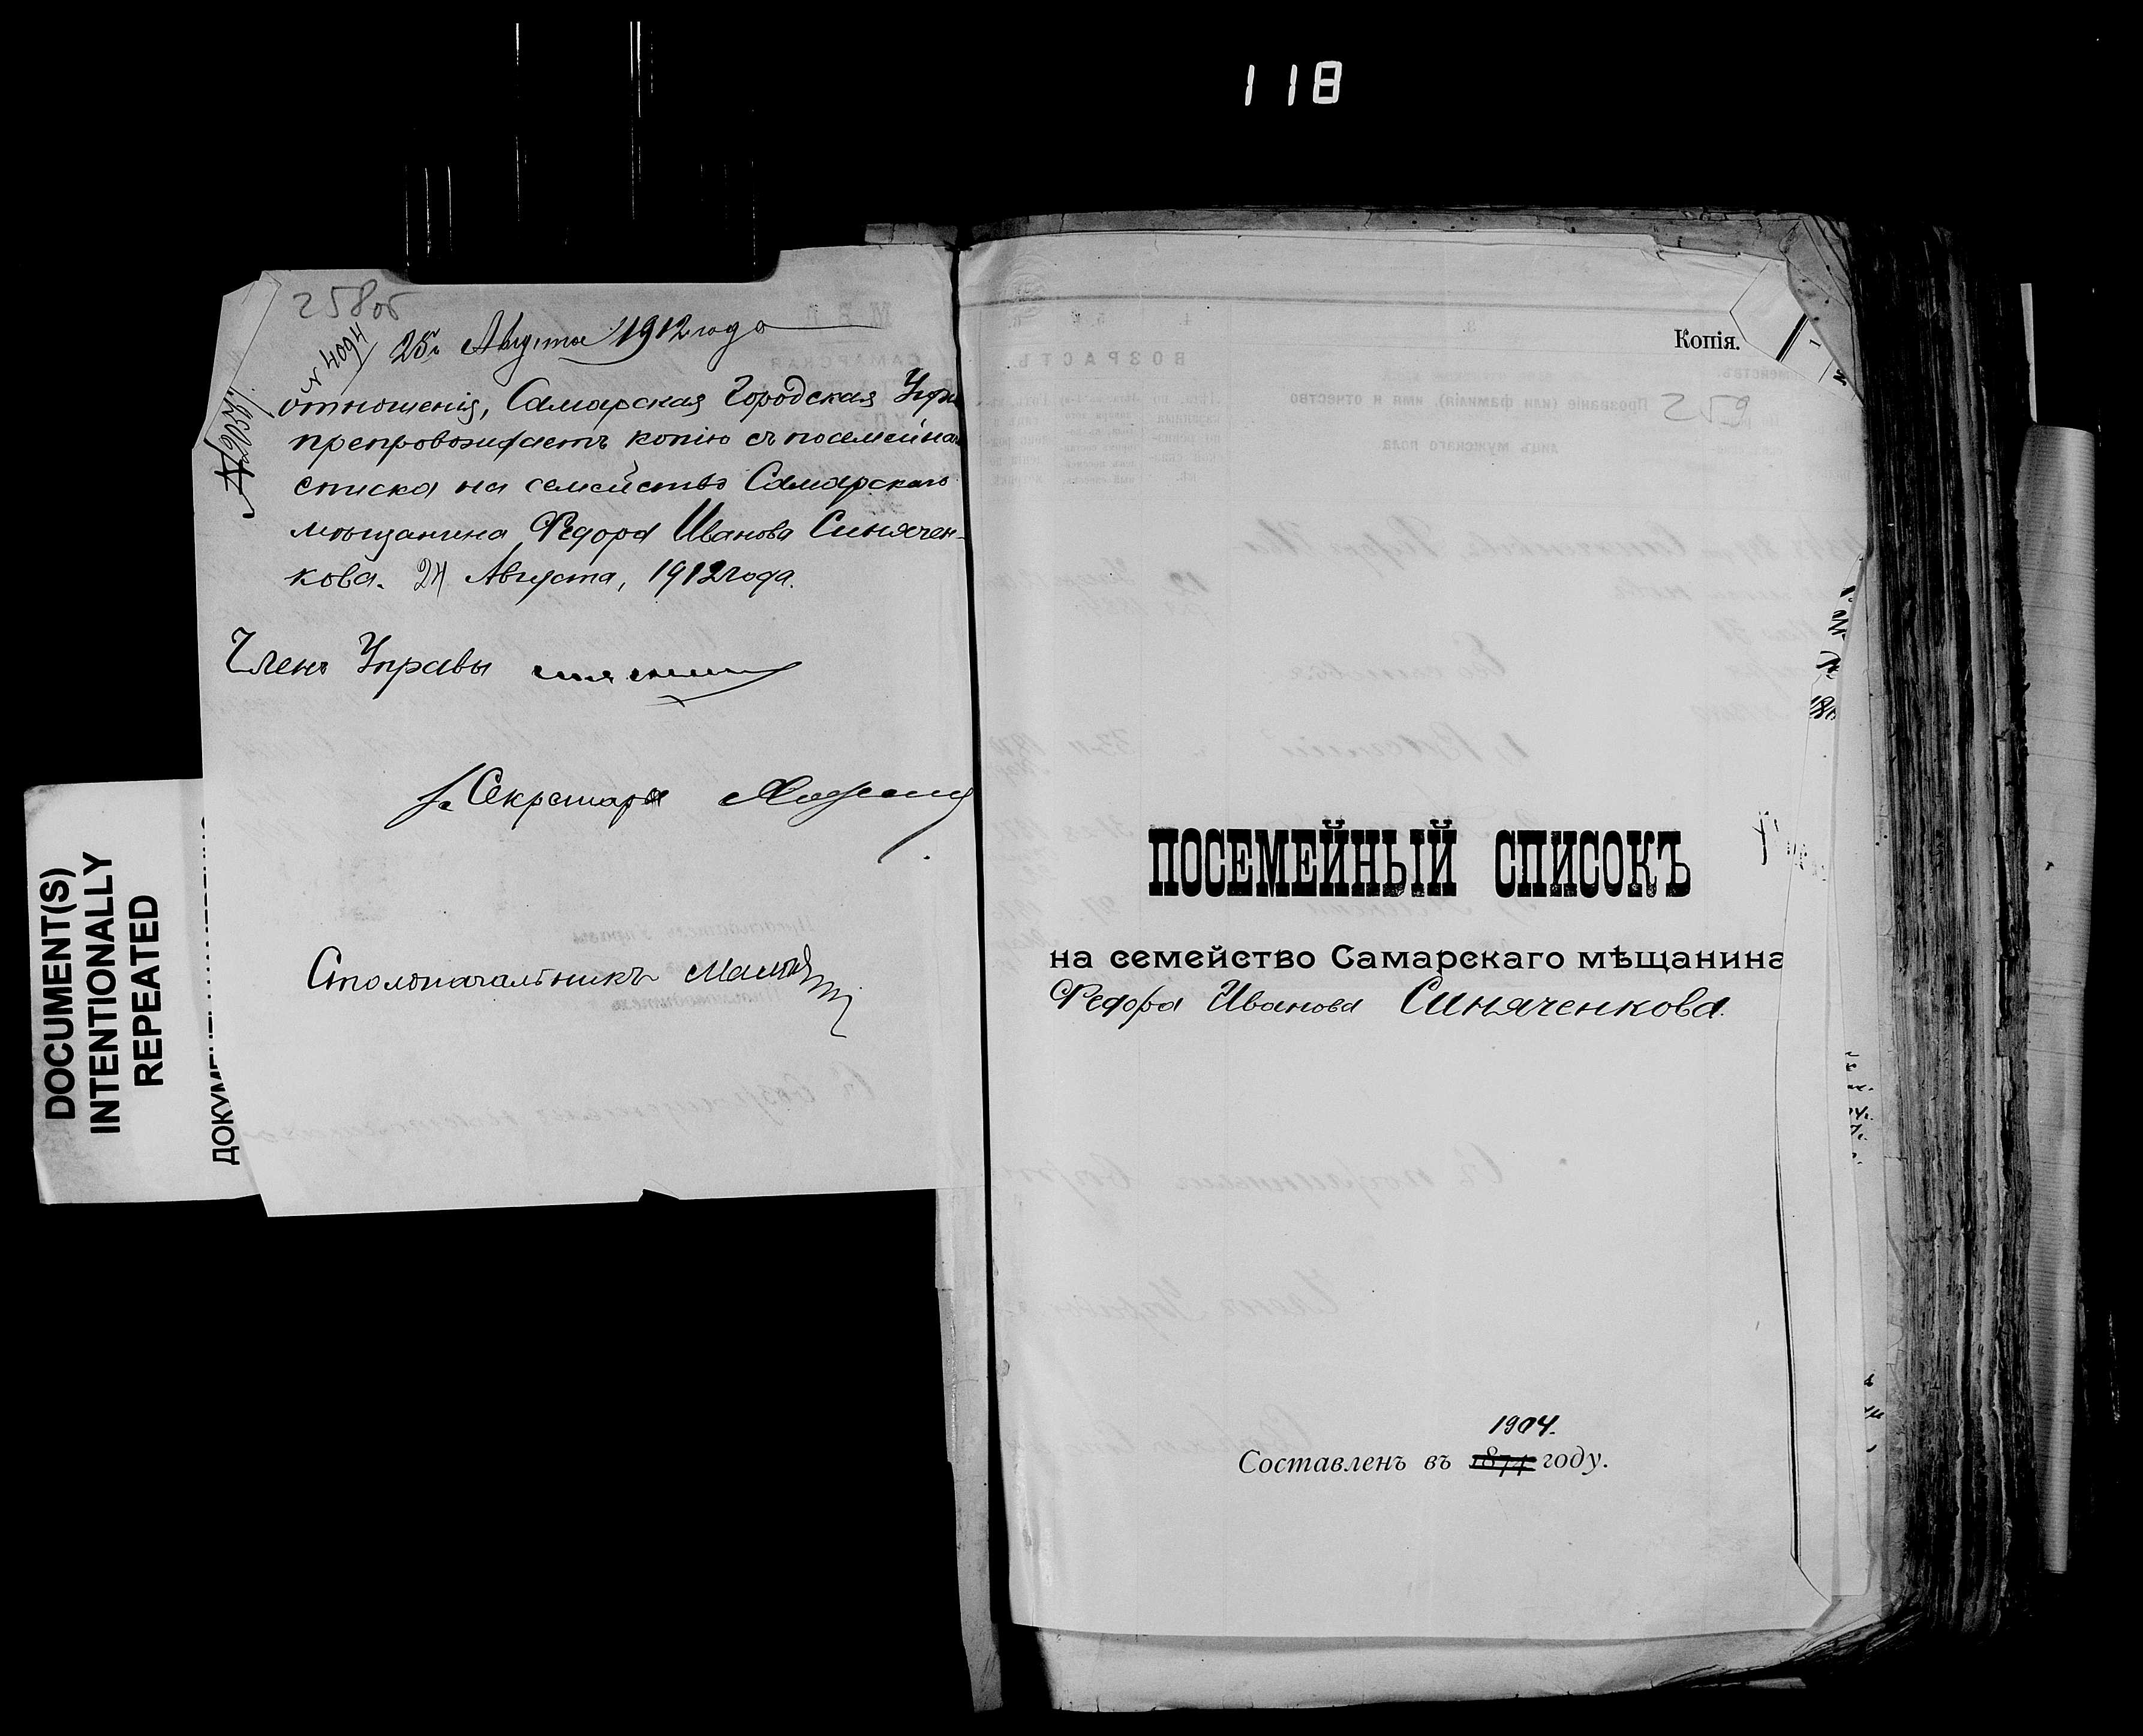 118
258об
№ 4094
25 Августа 1912 года
отношенія, Самарская Городская Упра
препровождаетъ копію съ посемейна
списка на семейство Самарскаго
мѣщанина Федора Иванова Синячен-
кова. 24 Августа, 1912 года.
Членъ Управы
Секретаря
Столоначальникъ
DOCUMENT(S)
INTENTIONALLY
REPEATED
Копія.
259
ПОСЕМЕЙНЫЙ СПИСОКЪ
на семейство Самарскаго мѣщанина
Федора Иванова Синяченкова.
1904.
Составленъ въ 1874 году.